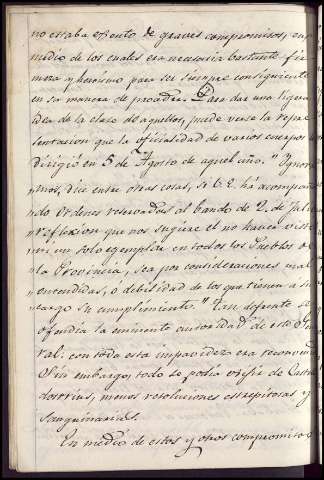 no estaba esento de graves compromisos, en
medio de los cuales era necesaria bastante fir
meza y heroismo para ser siempre consiguiente
en su manera de proceder. Para dar una ligera
idea de la clase de aquellos, puede verse la repre
sentacion que la oficialidad de varios cuerpos
dirigió en 5 de Agosto de aquel año. "Ygnora
"mos, dice entre otras cosas, si V.E. há acompaña
"do ordenes reservadas al bando de 2 de Julio
"reflexion que nos sugiere el no haver vis
un solo egemplar en todos los Pueblos de
"la Provincia, sea por consideraciones mal
"entendidas, ó debilidad de los que tienen a su
"cargo su cumplimiento." Tan de frente se
ofendia la eminente autoridad de este
ral: con toda esta impavidez era reconvenido
Sin embargo, todo se podia
menos resoluciones estrepitosas y
sanguinarias.
En medio de estos y otros compromisos